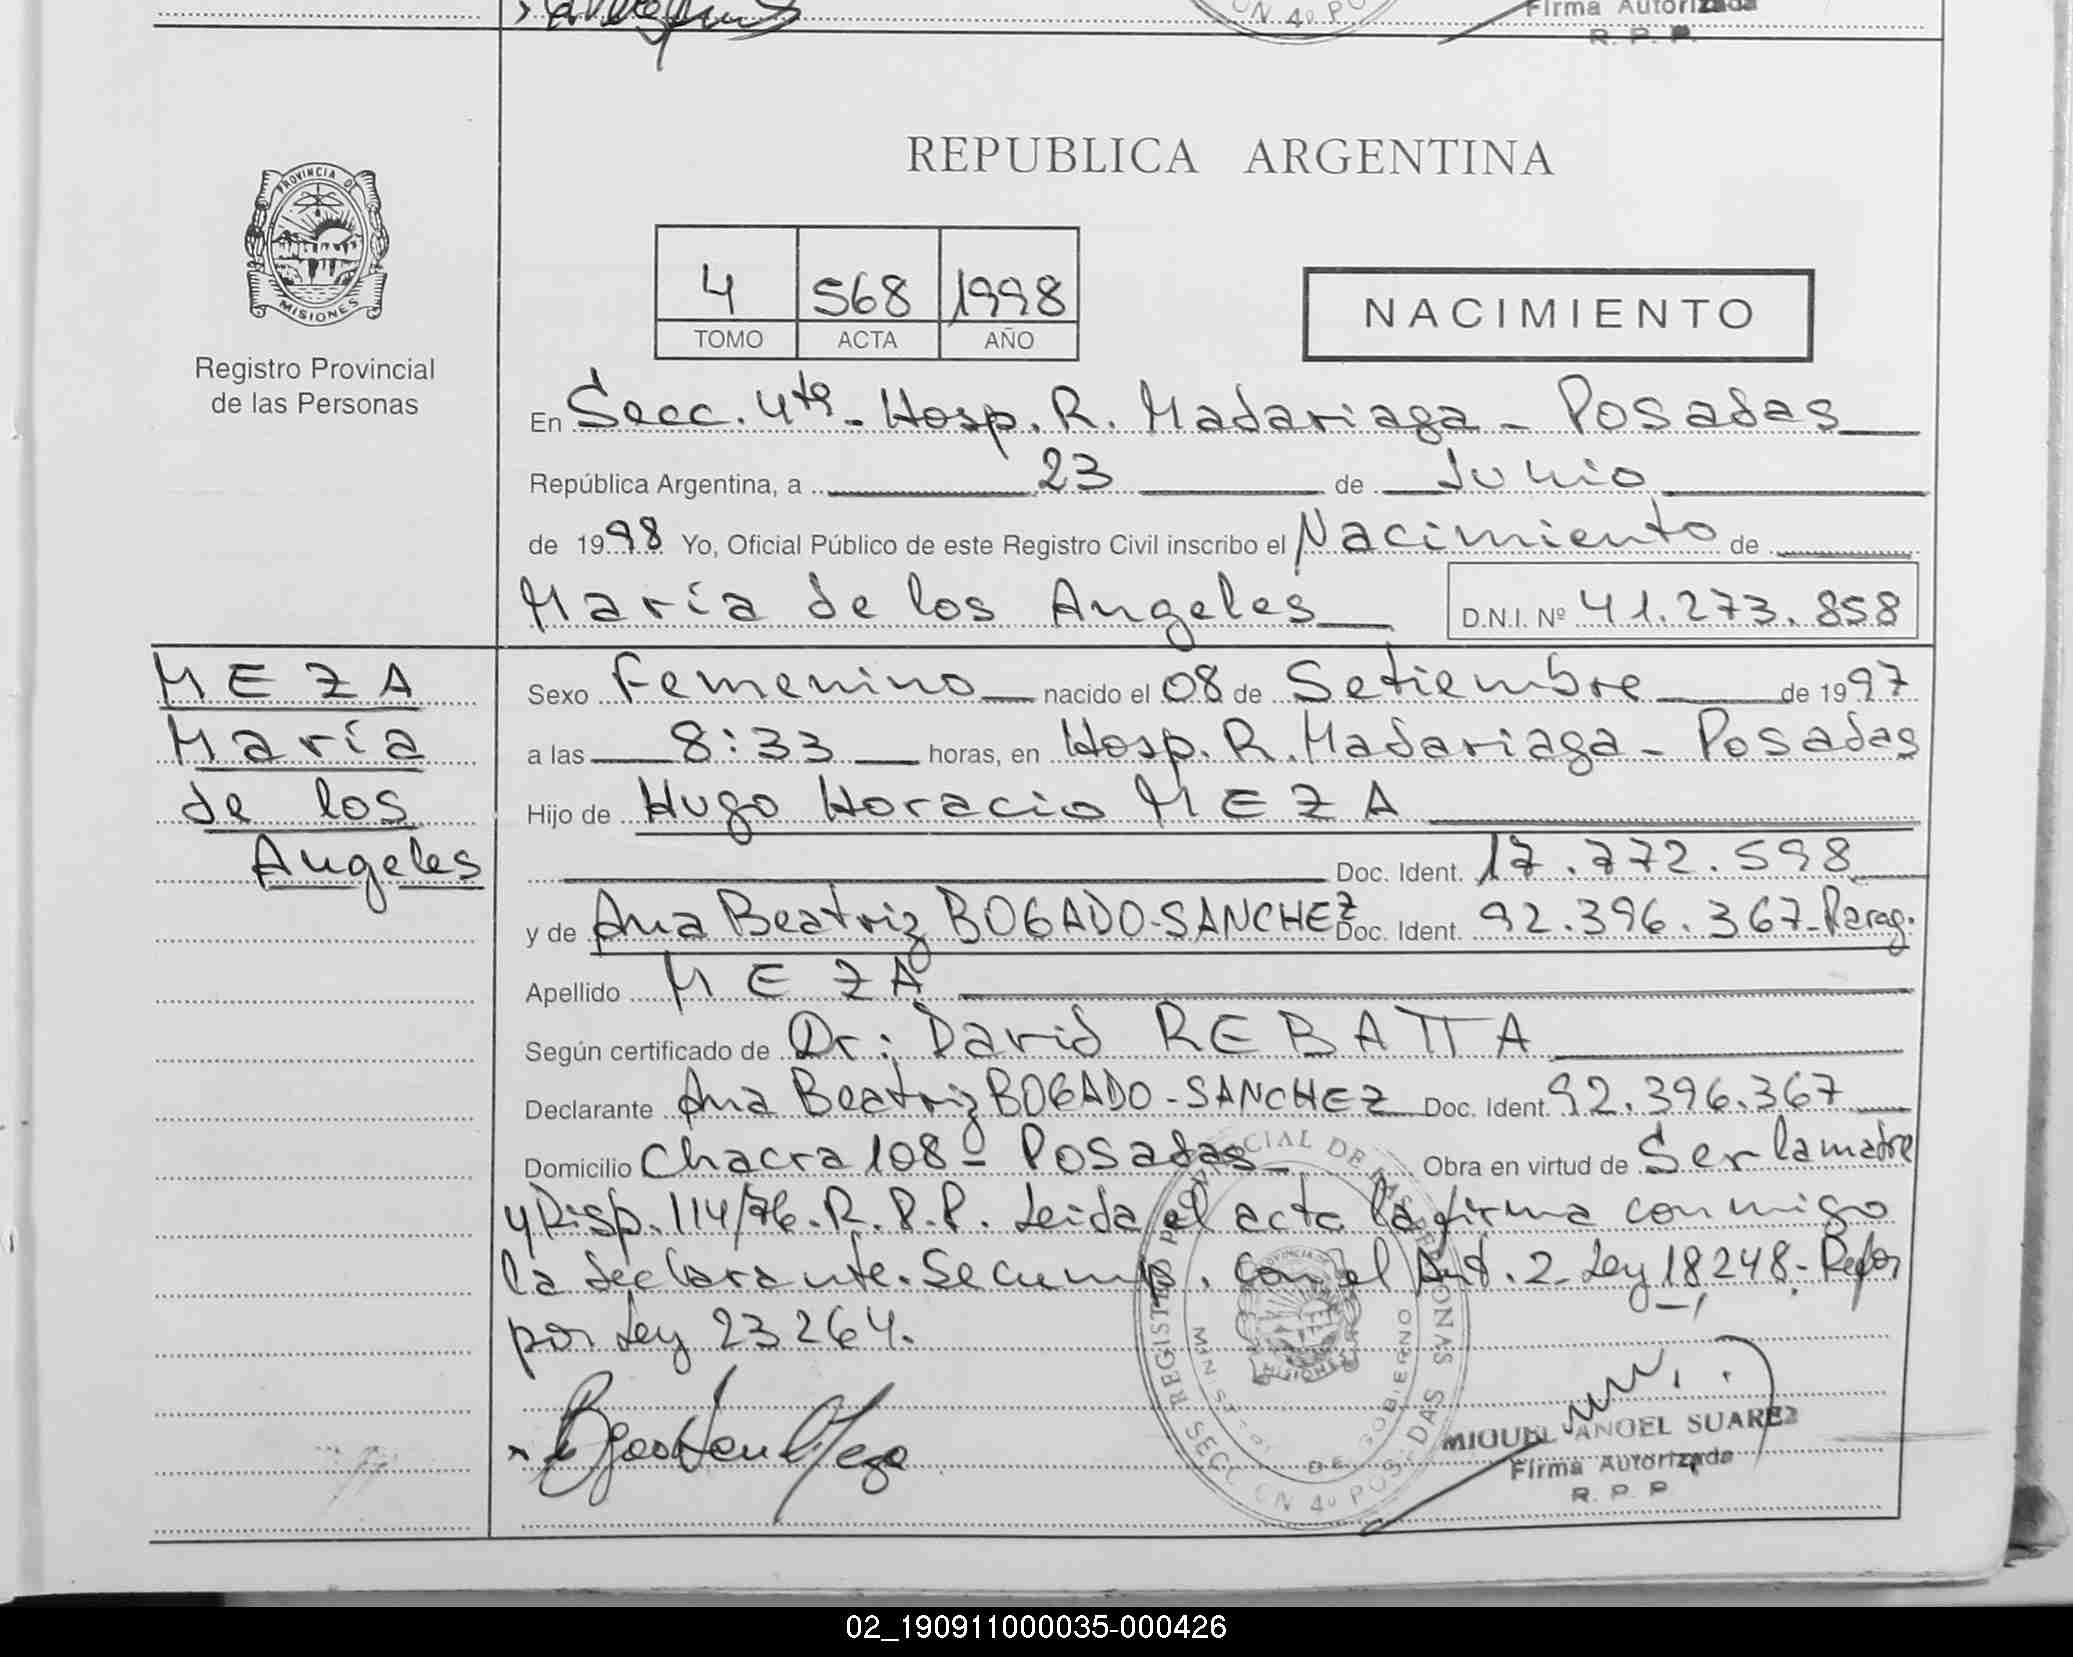 Firma Autorizada
R. P. P.
PROVINCIA DE
MISIONES
Registro Provincial
de las Personas
REPUBLICA ARGENTINA
4 568 1998
TOMO ACTA AÑO
NACIMIENTO
En Secc. 4ta - Hosp. R. Madariaga - Posadas
República Argentina, a 23 de Junio
de 1998 Yo, Oficial Público de este Registro Civil inscribo el Nacimiento de
María de los Angeles D.N.I. Nº 41.273.858
MEZA
María
de los
Angeles
Sexo Femenino nacido el 08 de Setiembre de 1997
a las 8:33 horas, en Hosp. R. Madariaga - Posadas
Hijo de Hugo Horacio MEZA
Doc. Ident. 17.772.598
y de Ana Beatriz BOGADO-SANCHEZ Doc. Ident. 92.396.367-Parag.
Apellido MEZA
Según certificado de Dr: David REBATTA
Declarante Ana Beatriz BOGADO-SANCHEZ Doc. Ident. 92.396.367
Domicilio Chacra 108 - Posadas Obra en virtud de Ser la madre
y Disp. 114/76. R.P.P. Leida el acta la firma conmigo
la declarante. Se cump. con el Art. 2 - Ley 18248 - Refor
por Ley 23264.
MIGUEL ANGEL SUAREZ
Firma Autorizada
R. P. P.
02_190911000035-000426